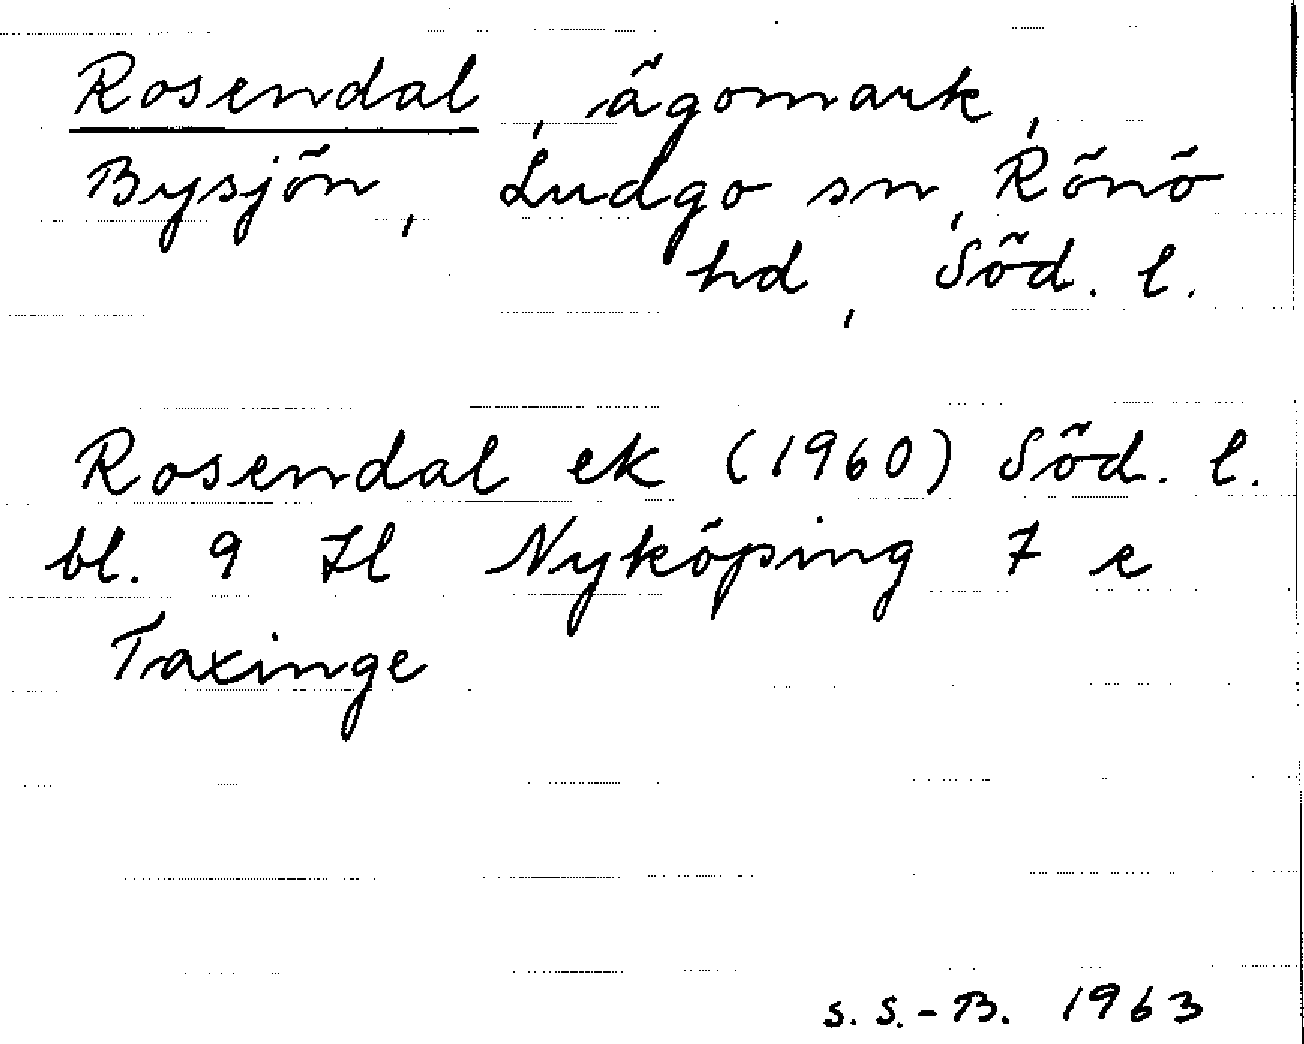 Rosendal, ägomark,
Bysjön, Ludgo sn, Rönö
hd, Söd. l.
Rosendal ek (1960) Söd. l.
bl. 9 Il Nyköping 7 e
Taxinge
S. S.-B. 1963